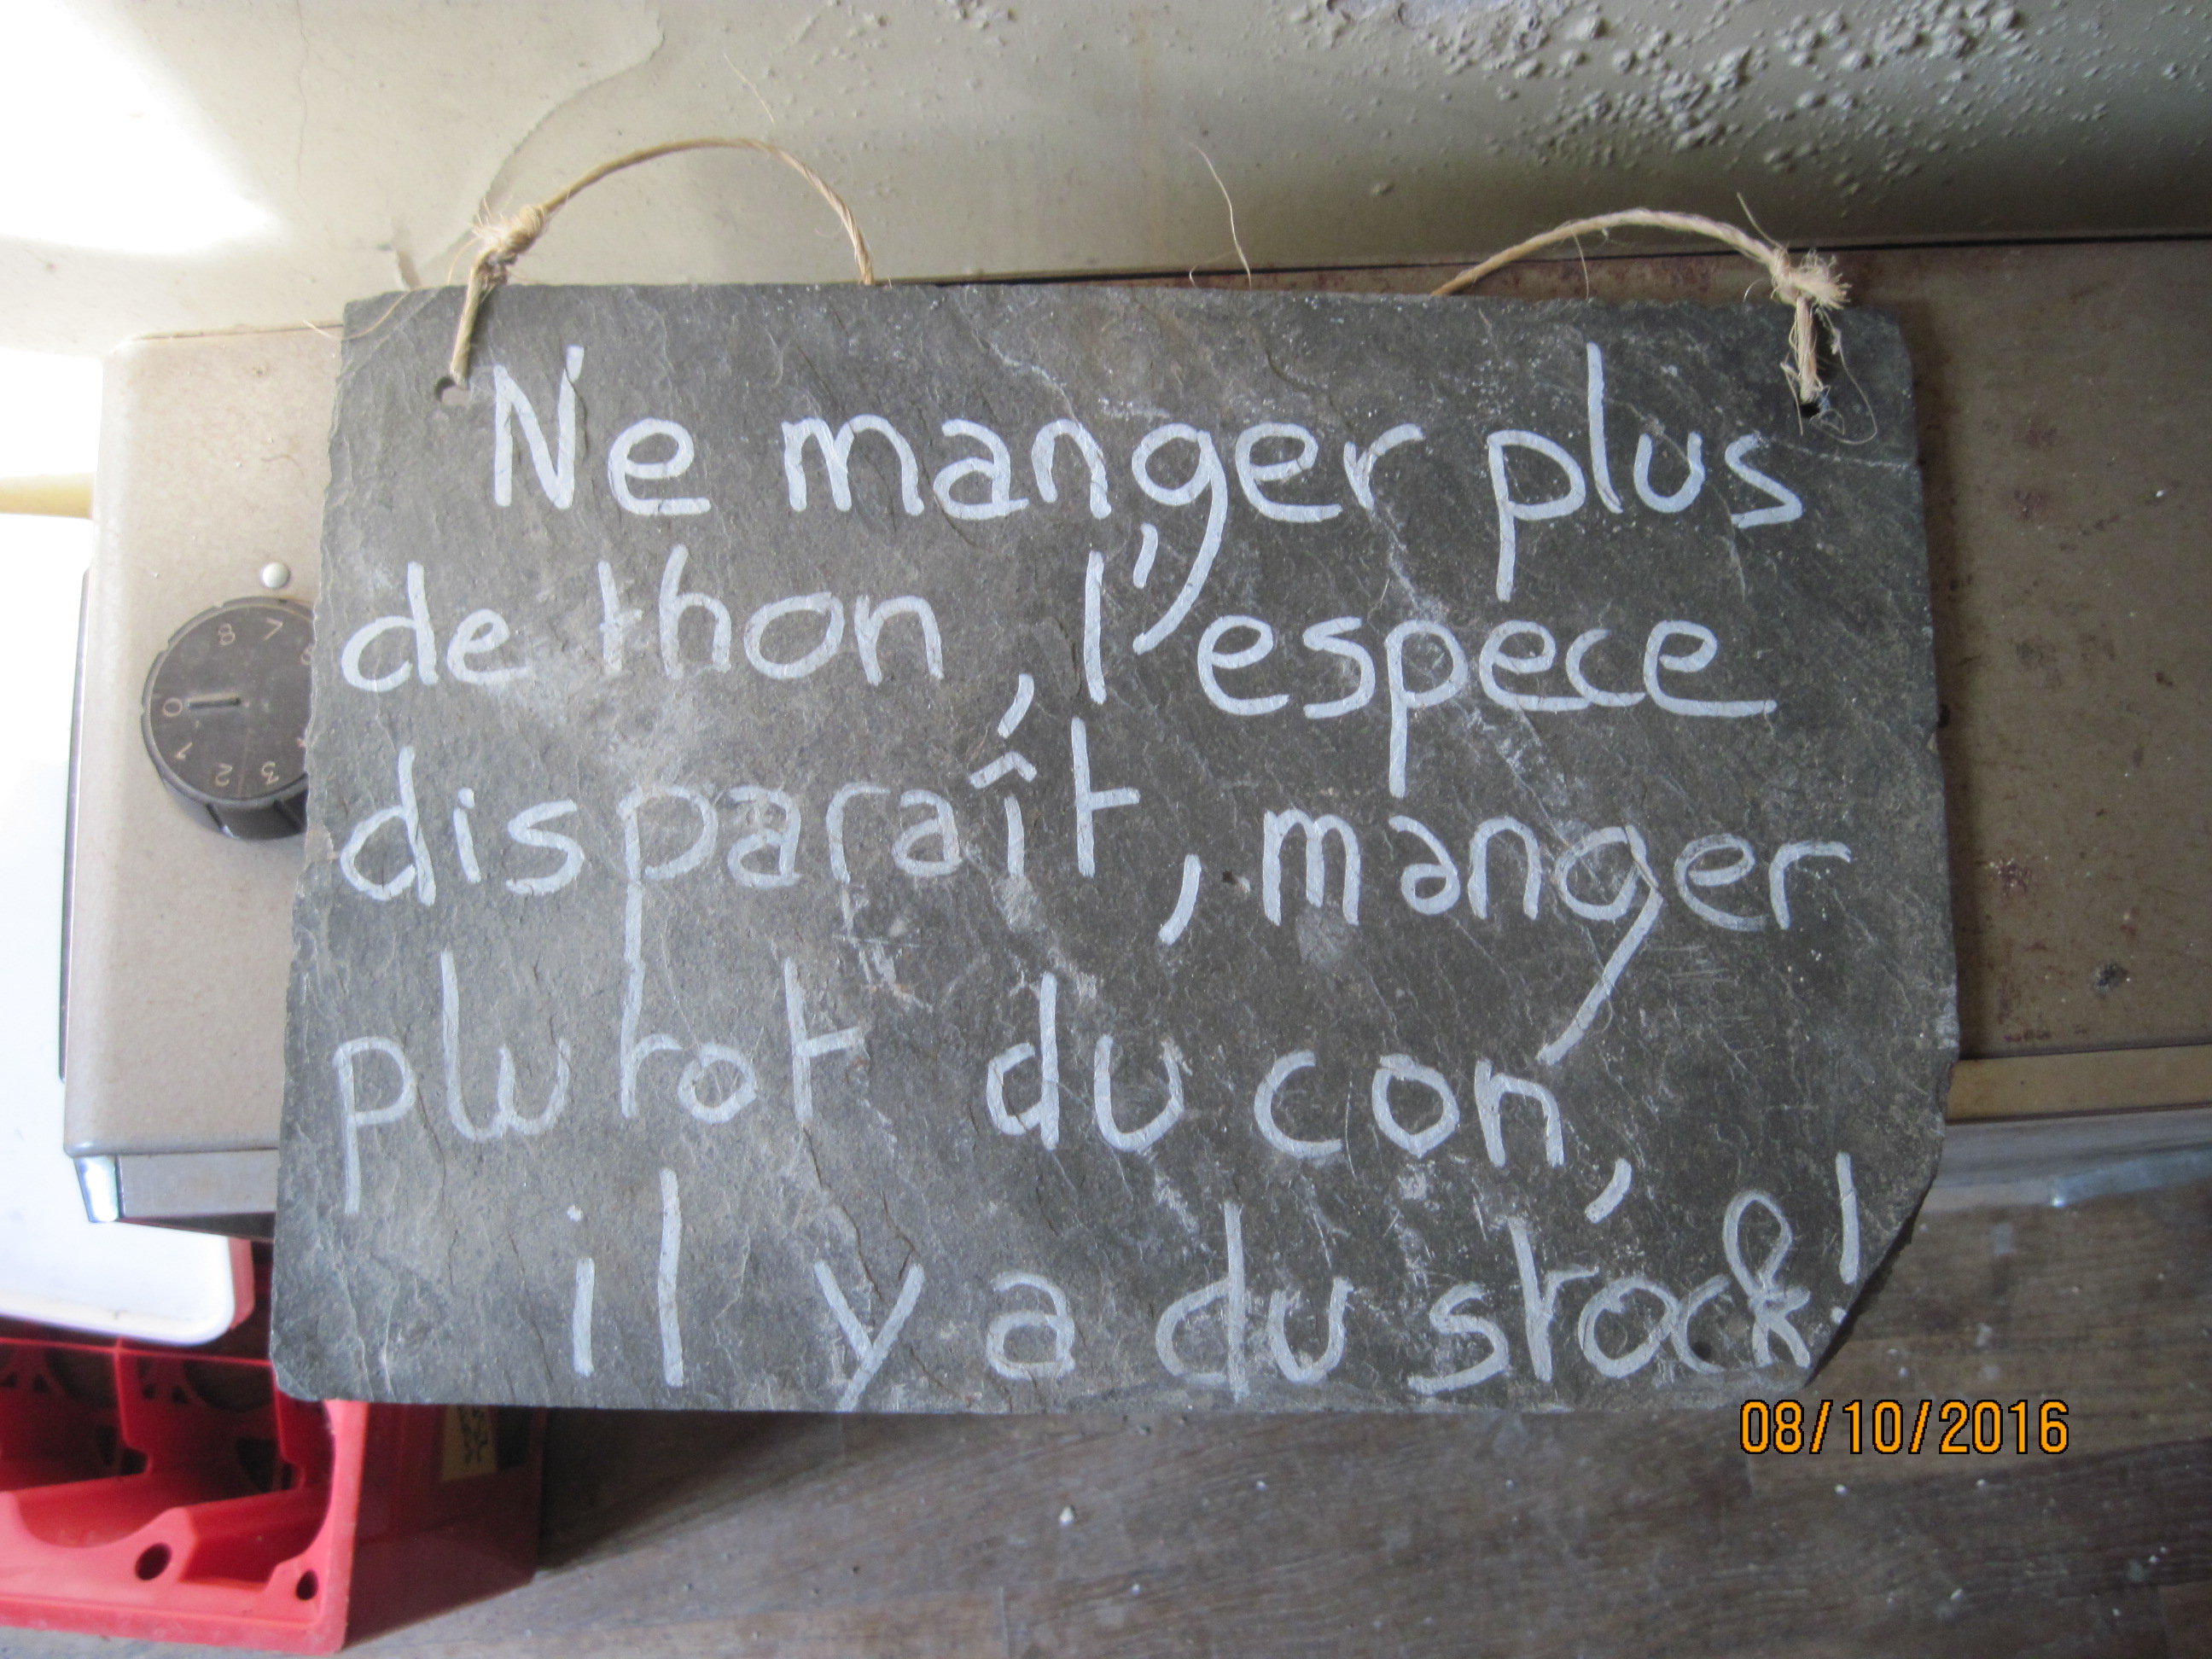 Ne manger plus
de thon, l'espece
disparaît, manger
plutot du con,
il y a du stock!
8 7
0
1 2 3
08/10/2016